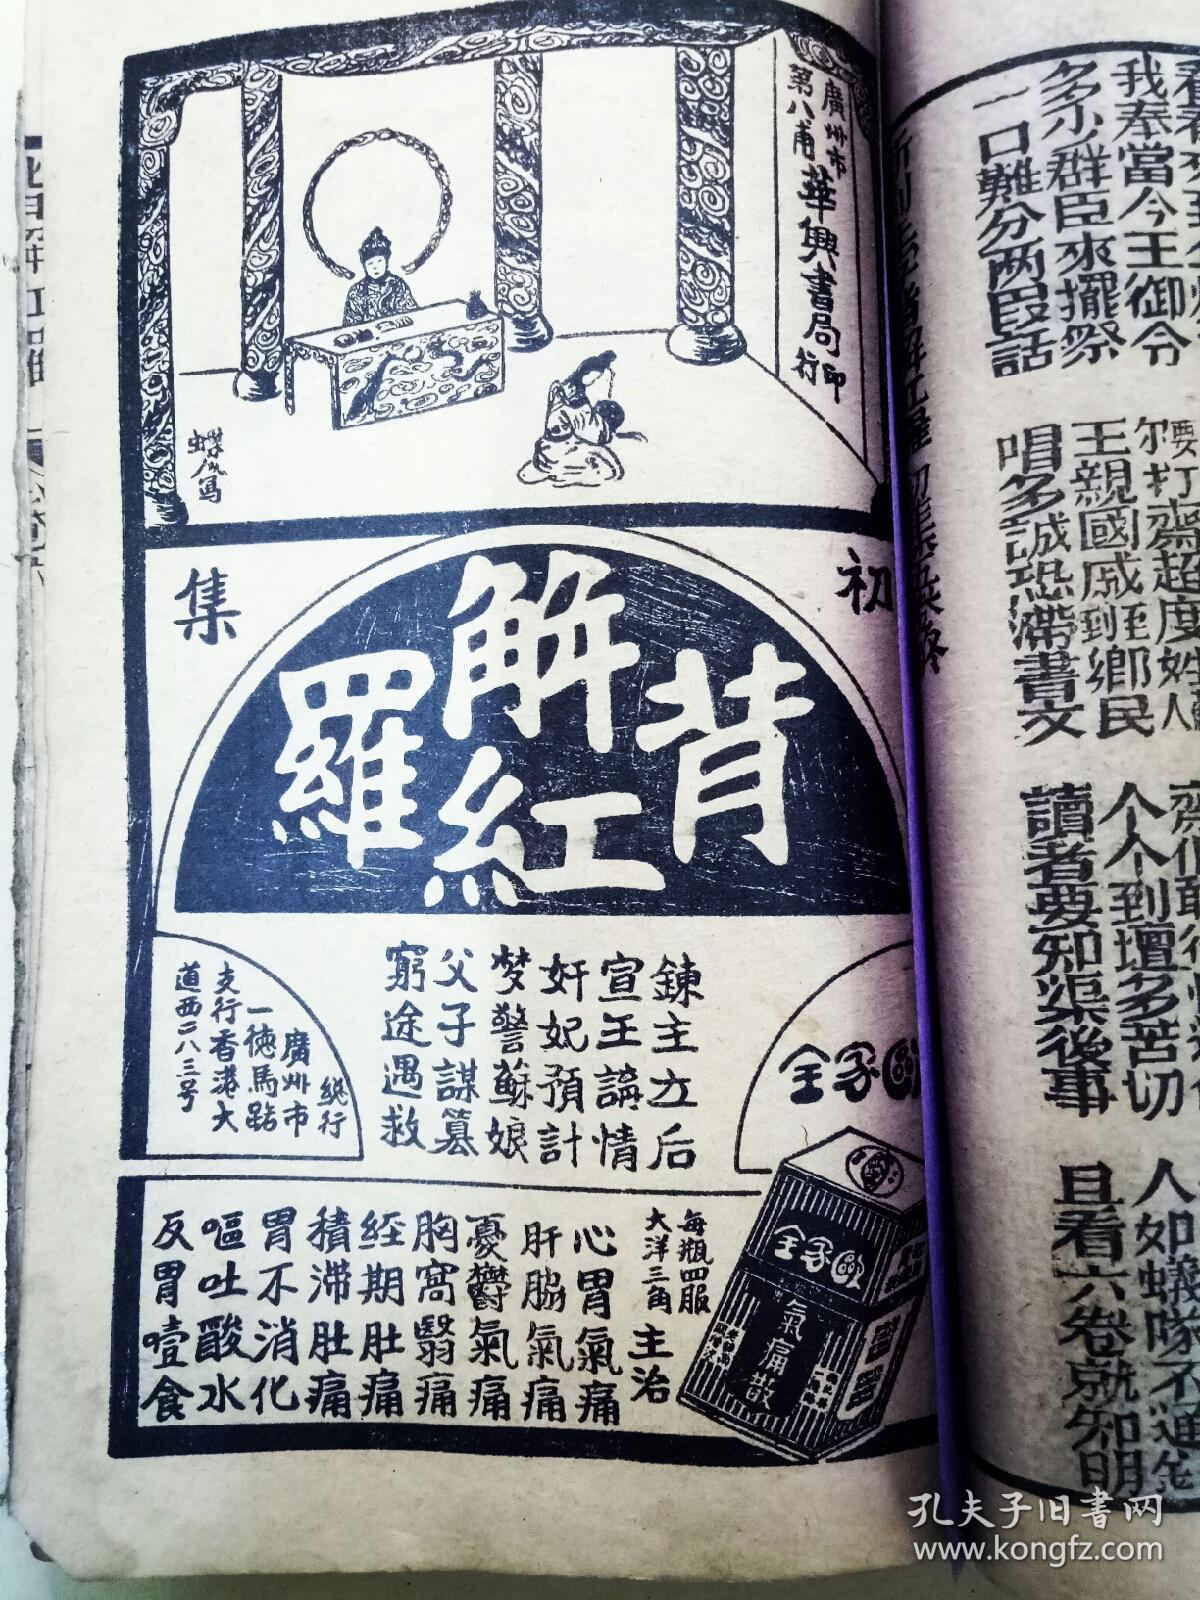 廣州市
第八甫
華興書局印行
蝶鳳寫
初
集
背解紅羅
鍊主立后
宣王講情
奸妃預計
梦警蘇娘
父子謀篡
窮途遇救
總行
廣州市
一德馬路
支行香港大
道西二八三号
全家
每瓶四服
大洋三角
主治
心胃氣痛
肝脇氣痛
憂鬱氣痛
胸窩翳痛
经期肚痛
積滞肚痛
胃不消化
嘔吐酸水
反胃噎食
氣痛散
我奉當今王御令
多少群臣來擺祭
一口難分两段話
王親國戚到鄉民
唱多誠恐滯書文
个个到壇多苦切
讀者要知渠後事
且看六卷就知明
孔夫子旧书网
www.kongfz.com